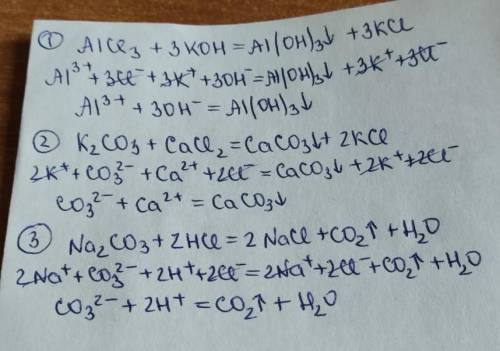 ① AlCl₃ + 3KOH = Al(OH)₃↓ + 3KCl
Al³⁺ + 3Cl⁻ + 3K⁺ + 3OH⁻ = Al(OH)₃↓ + 3K⁺ + 3Cl⁻
Al³⁺ + 3OH⁻ = Al(OH)₃↓
② K₂CO₃ + CaCl₂ = CaCO₃↓ + 2KCl
2K⁺ + CO₃²⁻ + Ca²⁺ + 2Cl⁻ = CaCO₃↓ + 2K⁺ + 2Cl⁻
CO₃²⁻ + Ca²⁺ = CaCO₃↓
③ Na₂CO₃ + 2HCl = 2NaCl + CO₂↑ + H₂O
2Na⁺ + CO₃²⁻ + 2H⁺ + 2Cl⁻ = 2Na⁺ + 2Cl⁻ + CO₂↑ + H₂O
CO₃²⁻ + 2H⁺ = CO₂↑ + H₂O